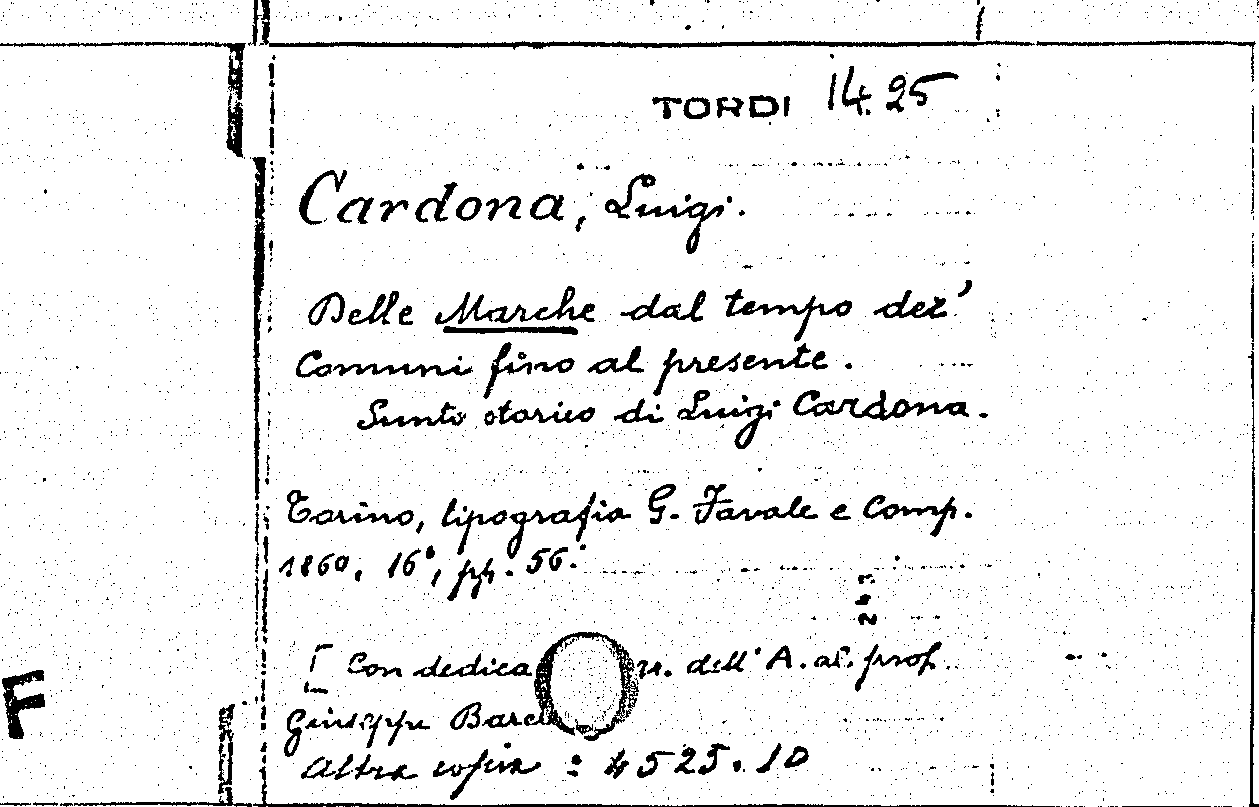 TORDI 14.25
Cardona, Luigi.
Delle Marche dal tempo dei'
Comuni fino al presente.
Sunto storico di Luigi Cardona.
Torino, tipografia G. Favale e Comp.
1860, 16°, pp. 56.
[Con dedica dell'A. al prof.
Giuseppe
Altra copia : 4525.10
F